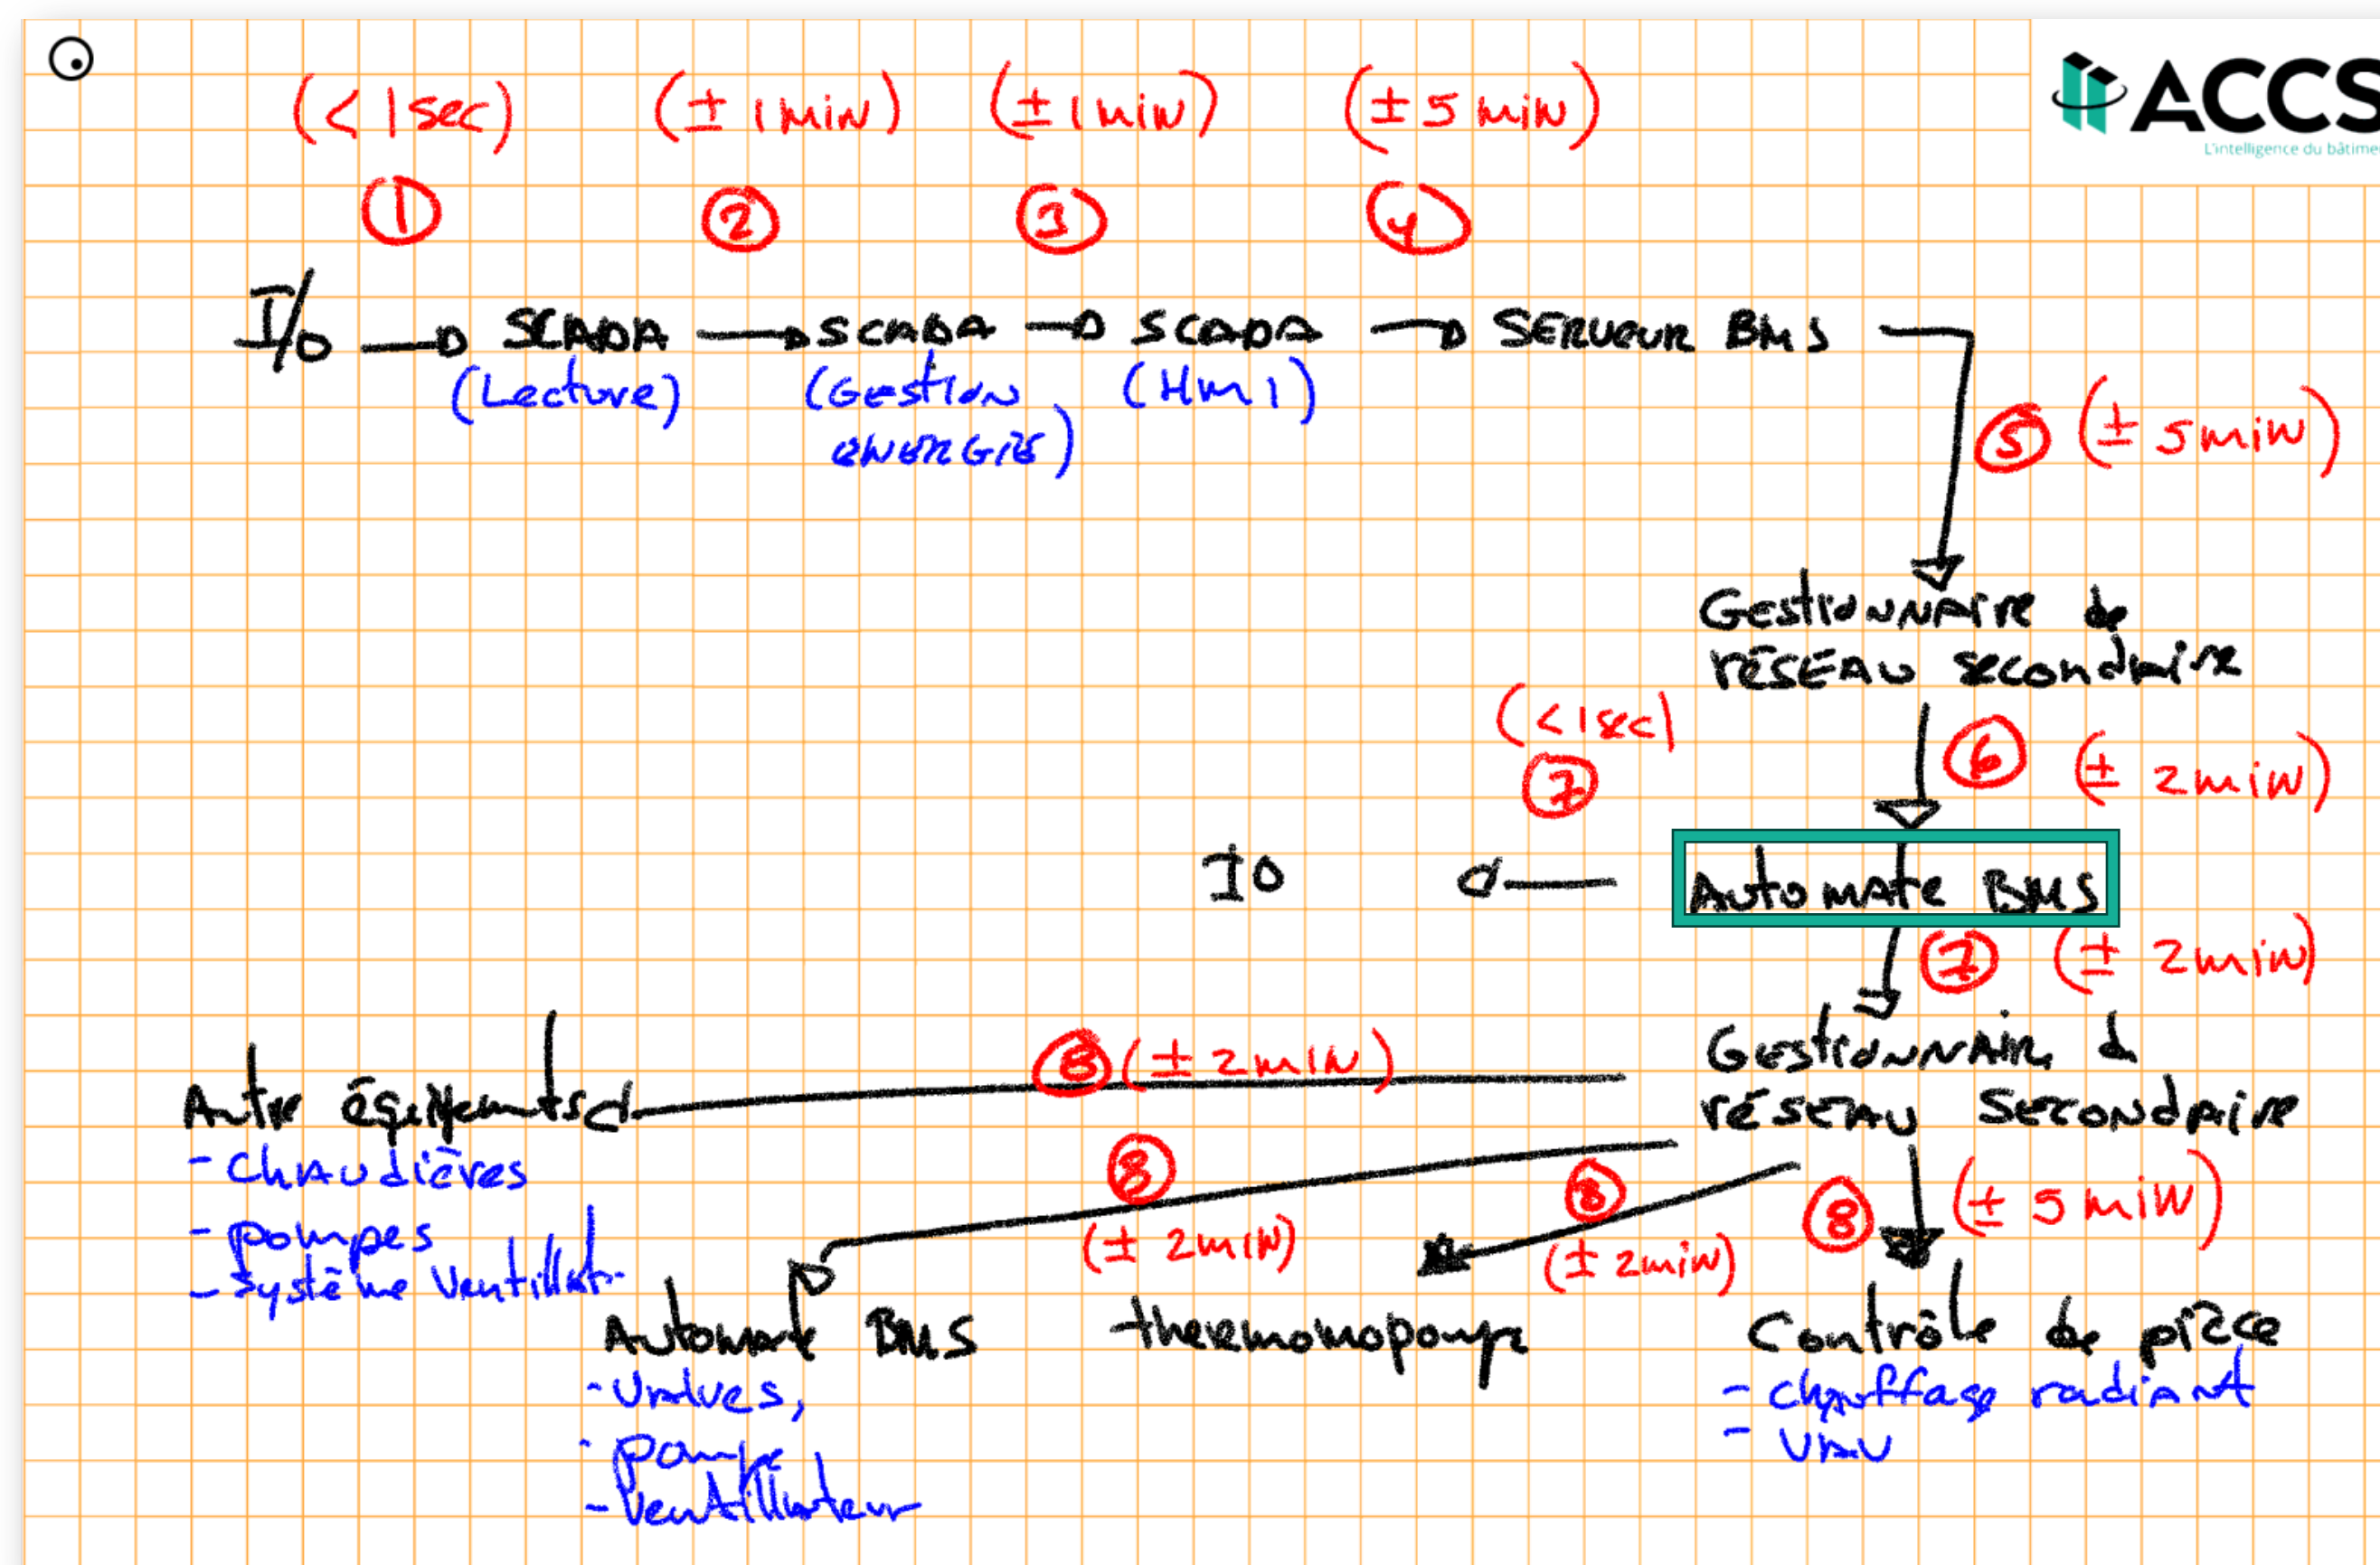 (< 1 sec) (± 1 min) (± 1 min) (± 5 min)
ACCS
L'intelligence du bâtime
1 2 3 4
I/O SCADA SCADA SCADA SERVEUR BMS
(Lecture) (Gestion (HMI)
énergie)
5 (± 5 min)
Gestionnaire de
réseau secondaire
(< 1 sec)
7
6 (± 2 min)
IO Automate BMS
7 (± 2 min)
8 (± 2 min)
Gestionnaire d
réseau secondaire
Autre équipements
- chaudières
- pompes
- système ventillat
8
(± 2 min)
8
(± 2 min)
8 (± 5 min)
Automate BMS
- valves,
- pompe
- ventillateur
thermomopompe
Contrôle de pièce
- chauffage radiant
- VAV